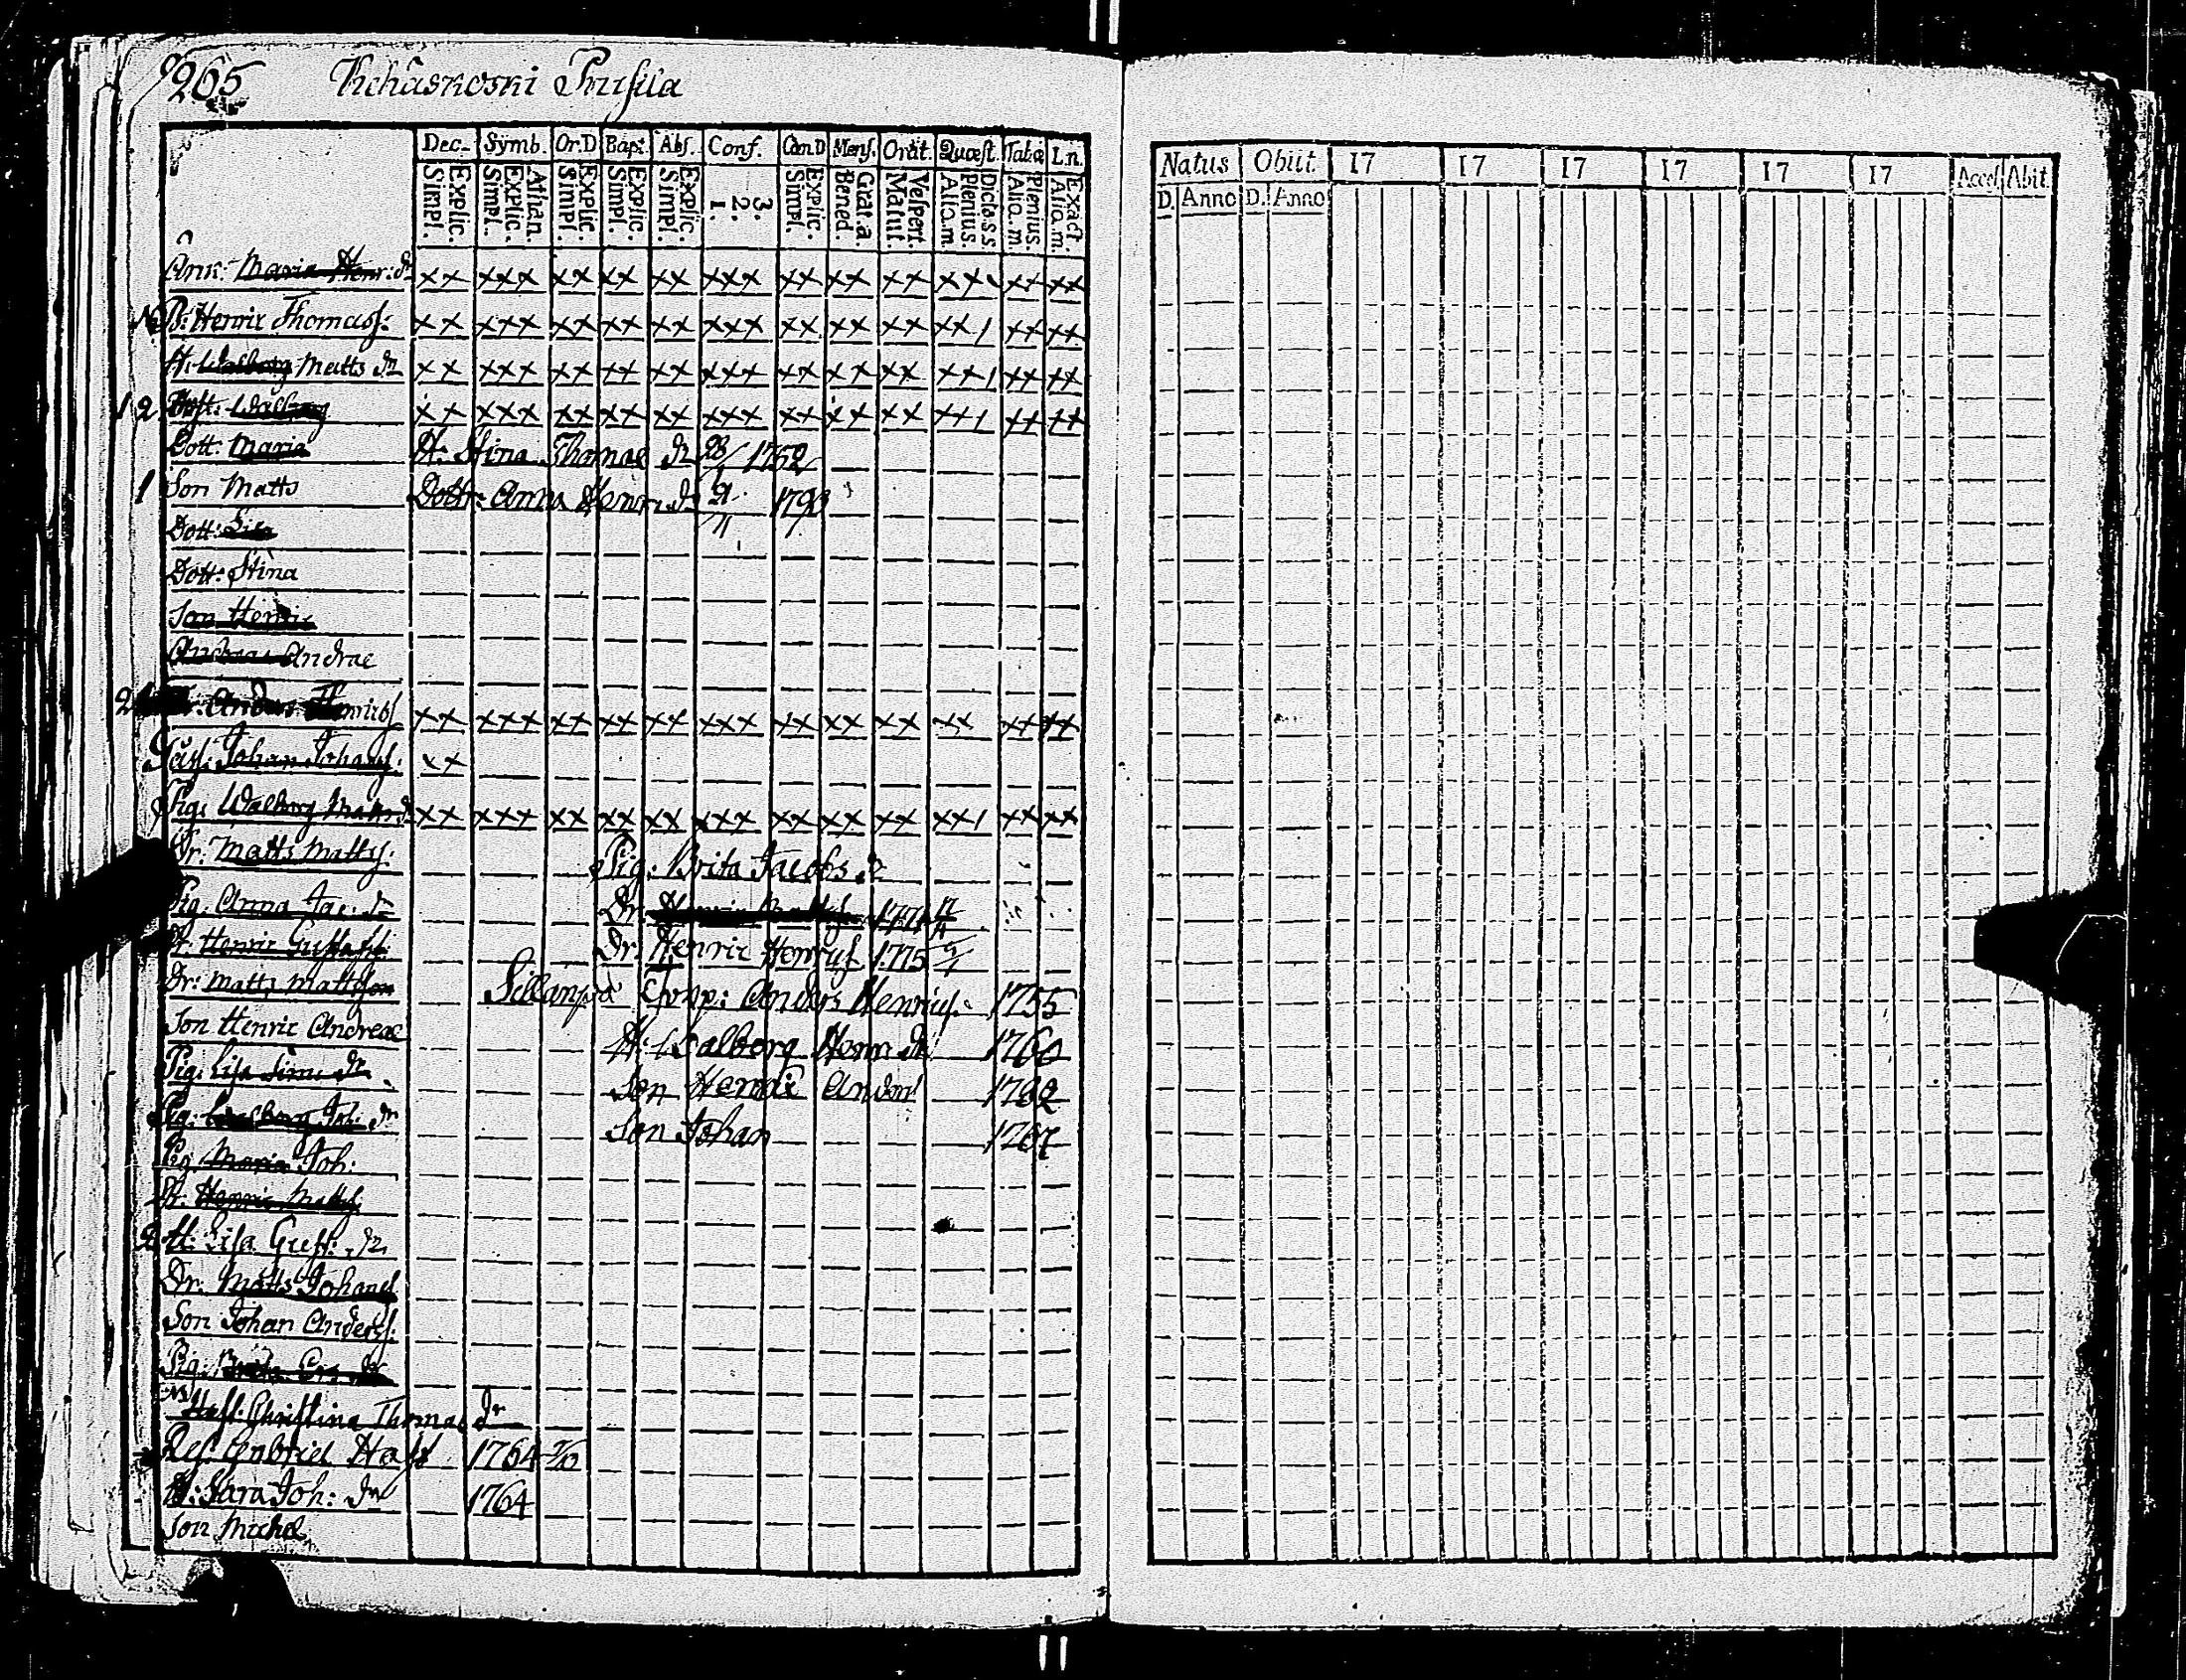 265 Kehäskoski Prusila
Dec. Symb. Or.D Bapt. Abs. Conf. Cœn.D Mens. Orat. Quæst. Tab.æ L.n.
Explic. Simpl. Athan. Explic. Simpl. Explic. Simpl. Explic. Simpl. Explic. Simpl. 3. 2. 1. Explic. Simpl. Grat.a. Bened. Vespert. Matut. Dicta.s.s. Plenius. Alio.m. Plenius. Alio.m. Exact. Alio.m.
Enk: Maria Henr: dr xx xxx xx xx xx xxx xx xx xx xx xx xx
B: Henric Thomass: xx xxx xx xx xx xxx xx xx xx xx1 xx xx
H: Walborg Matts dr xx xxx xx xx xx xxx xx xx xx xx1 xx xx
12 Walborg xx xxx xx xx xx xxx xx xx xx xx1 xx xx
Dott: Maria H: Stina Thomae dr 1752
1 Son Matts Dottr: Anna Henr: dr 1793
Dott: Lisa
Dott: Stina
Son Henric
Andreas Andrae
Dr: Anders Henricss xx xxx xx xx xx xxx xx xx xx xx xx xx
Johan Johanss: xx
Pig: Walborg Matts dr xx xxx xx xx xx xxx xx xx xx xx1 xx xx
Dr: Matts Mattss: Pig: Brita Jacobs d
Pig: Anna Jac: dr Dr: Henric Mattss 1774
Dr: Henric Gustafss: Dr: Henric Henricss 1775
Dr: Matts Mattson Sillanpää Torp: Anders Henricss: 1755
Son Henric Andreae H: Walborg Henr dr 1760
Pig: Lisa Sim: dr Son Henric Anders 1782
Pig: Walborg Joh: dr Son Johan 1767
Pig: Maria Joh:
Dr: Henric Mattss
H: Lisa Gust: dr
Dr: Matts Johanss
Son Johan Anderss:
Pig: Brita
Hust: Christina Thomae dr
Gabriel Haft 1764
H: Sara Joh: dr 1764
Son Michel
Natus Obiit. 17 17 17 17 17 17 Acces. Abit
D. Anno D. Anno